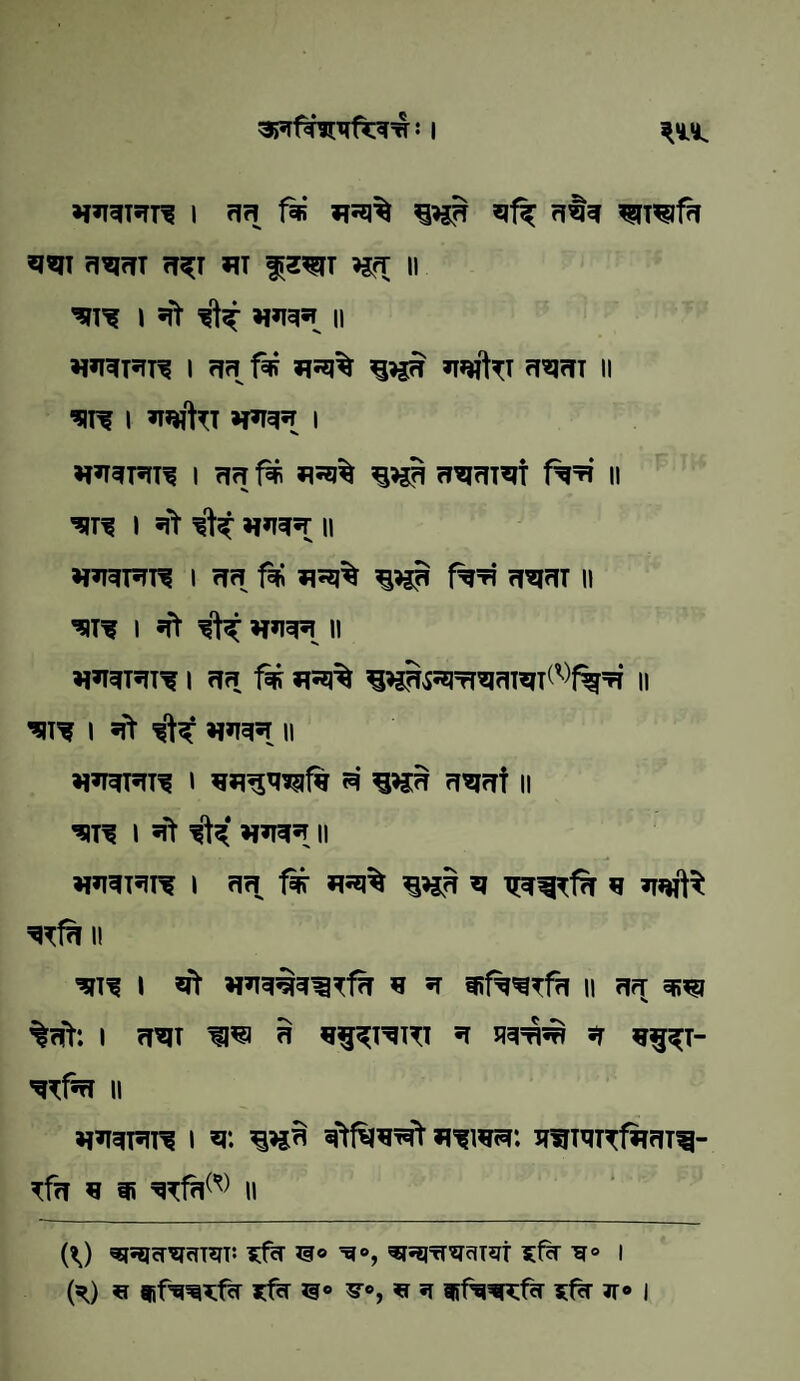 ऊनविंशपरिवर्त्तः । ३५५
भगवानाह । तत् किं मन्यसे सुभूते यदि तथैव स्थास्यति
यथा तथता तदा मा कूटस्था भूत् ॥
आह । नो हीदं भगवन् ॥
भगवानाह । तत् किं मन्यसे सुभूते गम्भीरा तथता ॥
आह । गम्भीरा भगवन् ।
भगवानाह । तत् किं मन्यसे सुभूते तथतायां चित्तं ॥
आह । नो हीदं भगवन् ॥
भगवानाह । तत् किं मन्यसे सुभूते चित्तं तथता ॥
आह । नो हीदं भगवन् ॥
भगवानाह । तत् किं मन्यसे सुभूतेऽन्यत्तथताया(१)श्चित्तं ॥
आह । नो हीदं भगवन् ॥
भगवानाह । समनुपश्यसि त्वं सुभूते तथतां ॥
आह । नो हीदं भगवन् ॥
भगवानाह । तत् किं मन्यसे सुभूते य एवञ्चरति स गम्भीरे
चरति ॥
आह । यो भगवन्नेवञ्चरति स न क्वचिच्चरति ॥ तत् कस्य
हेतोः । तथा ह्यस्य ते समुदाचारा न प्रवर्त्तन्ते न समुदा-
चरन्ति ॥
भगवानाह । यः सुभूते बोधिसत्त्वो महासत्त्वः प्रज्ञापारमितायाञ्च-
रति स क्व चरति(२) ॥
(१) अन्यतथतायाः इति ख० च०, अन्यत्तथतायां इति घ० ।
(२) स क्वचिच्चरति इति ख० ङ०, स न क्वचिच्चरति इति ग० ।